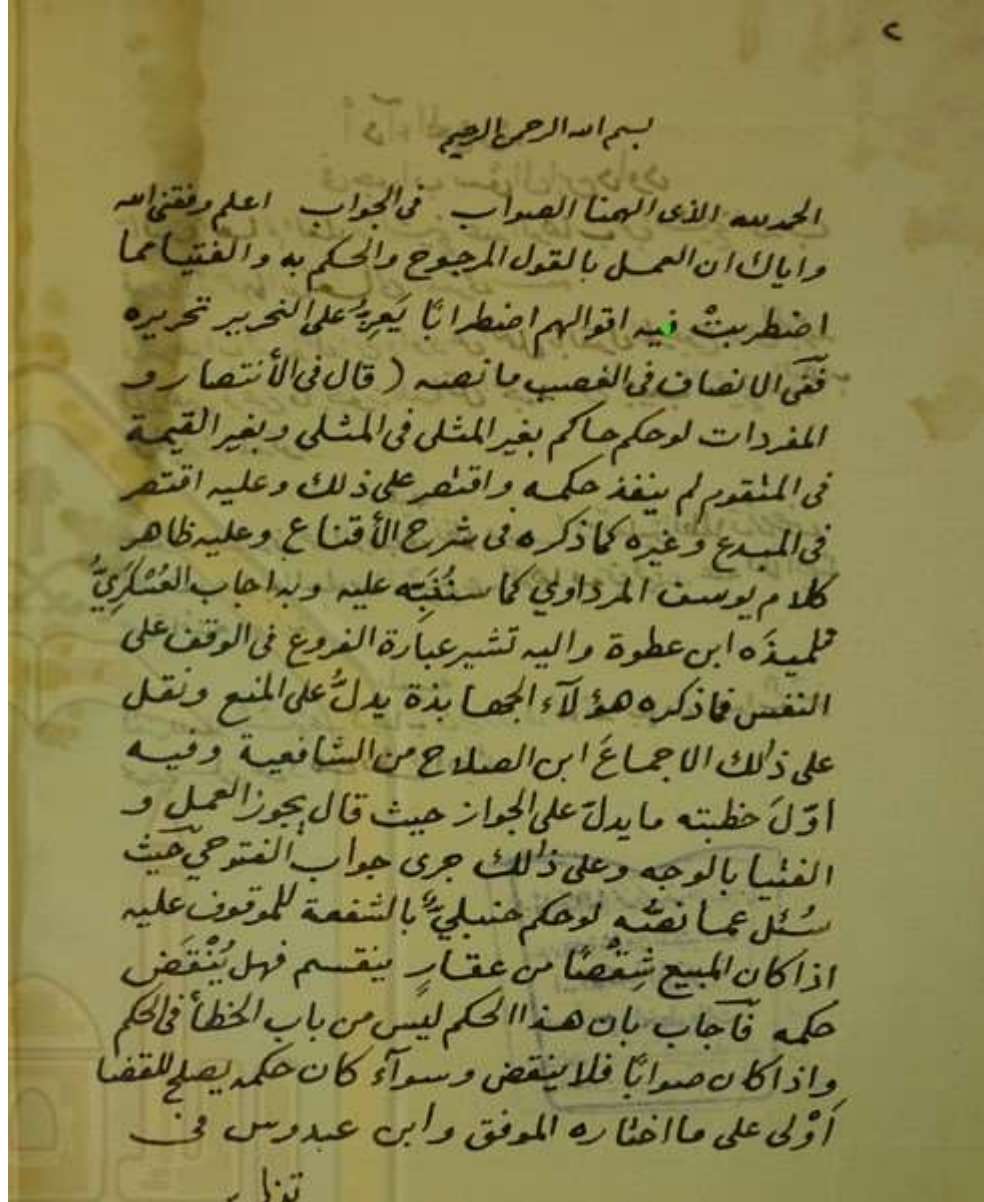 ٢
بسم الله الرحمن الرحيم
الحمد لله الذى الهمنا الصواب فى الجواب اعلم وفقنى الله
واياك ان العمل بالقول المرجوح والحكم به والفتيا مما
اضطربتْ فيه اقوالهم اضطرابًا يَعِزُّ على النحرير تحريره
فَفى الانصاف فى الغصب ما نصه ( قال فى الأنتصار و
المفردات لو حكم حاكم بغير المثلى فى المثلى وبغير القيمة
فى المتقوم لم ينفذ حكمه واقتصر على ذلك وعليه اقتصر
فى المبدع وغيره كما ذكره فى شرح الأقناع وعليه ظاهر
كلام يوسف المرداوي كما سنُنَبِّه عليه وبه اجاب العُسْكَرِيّ
تلميذَه ابن عطوة واليه تشير عبارة الفروع فى الوقف على
النفس فما ذكره هؤلآء الجهابذة يدلُّ على المنع ونقل
على ذلك الاجماعَ ابن الصلاح من الشافعية وفيه
اوّلَ خطبته ما يدلّ على الجواز حيث قال يجوز العمل و
الفتيا بالوجه وعلى ذلك جرى جواب الفتوحيّ حَيث
سُئل عما نصُّه لو حكم حنبليٌّ بالشفعة للموقوف عليه
اذا كان المبيع شِقْصًا من عقارٍ ينقسم فهل يُنْقَض
حكمه فأجاب بان هذا الحكم ليس من باب الخطأ فى الحكم
واذا كان صوابًا فلا ينقض وسوآء كان حكمه يصلح للقضا
اَوْلى على ما اختاره الموفق وابن عبدوس فى